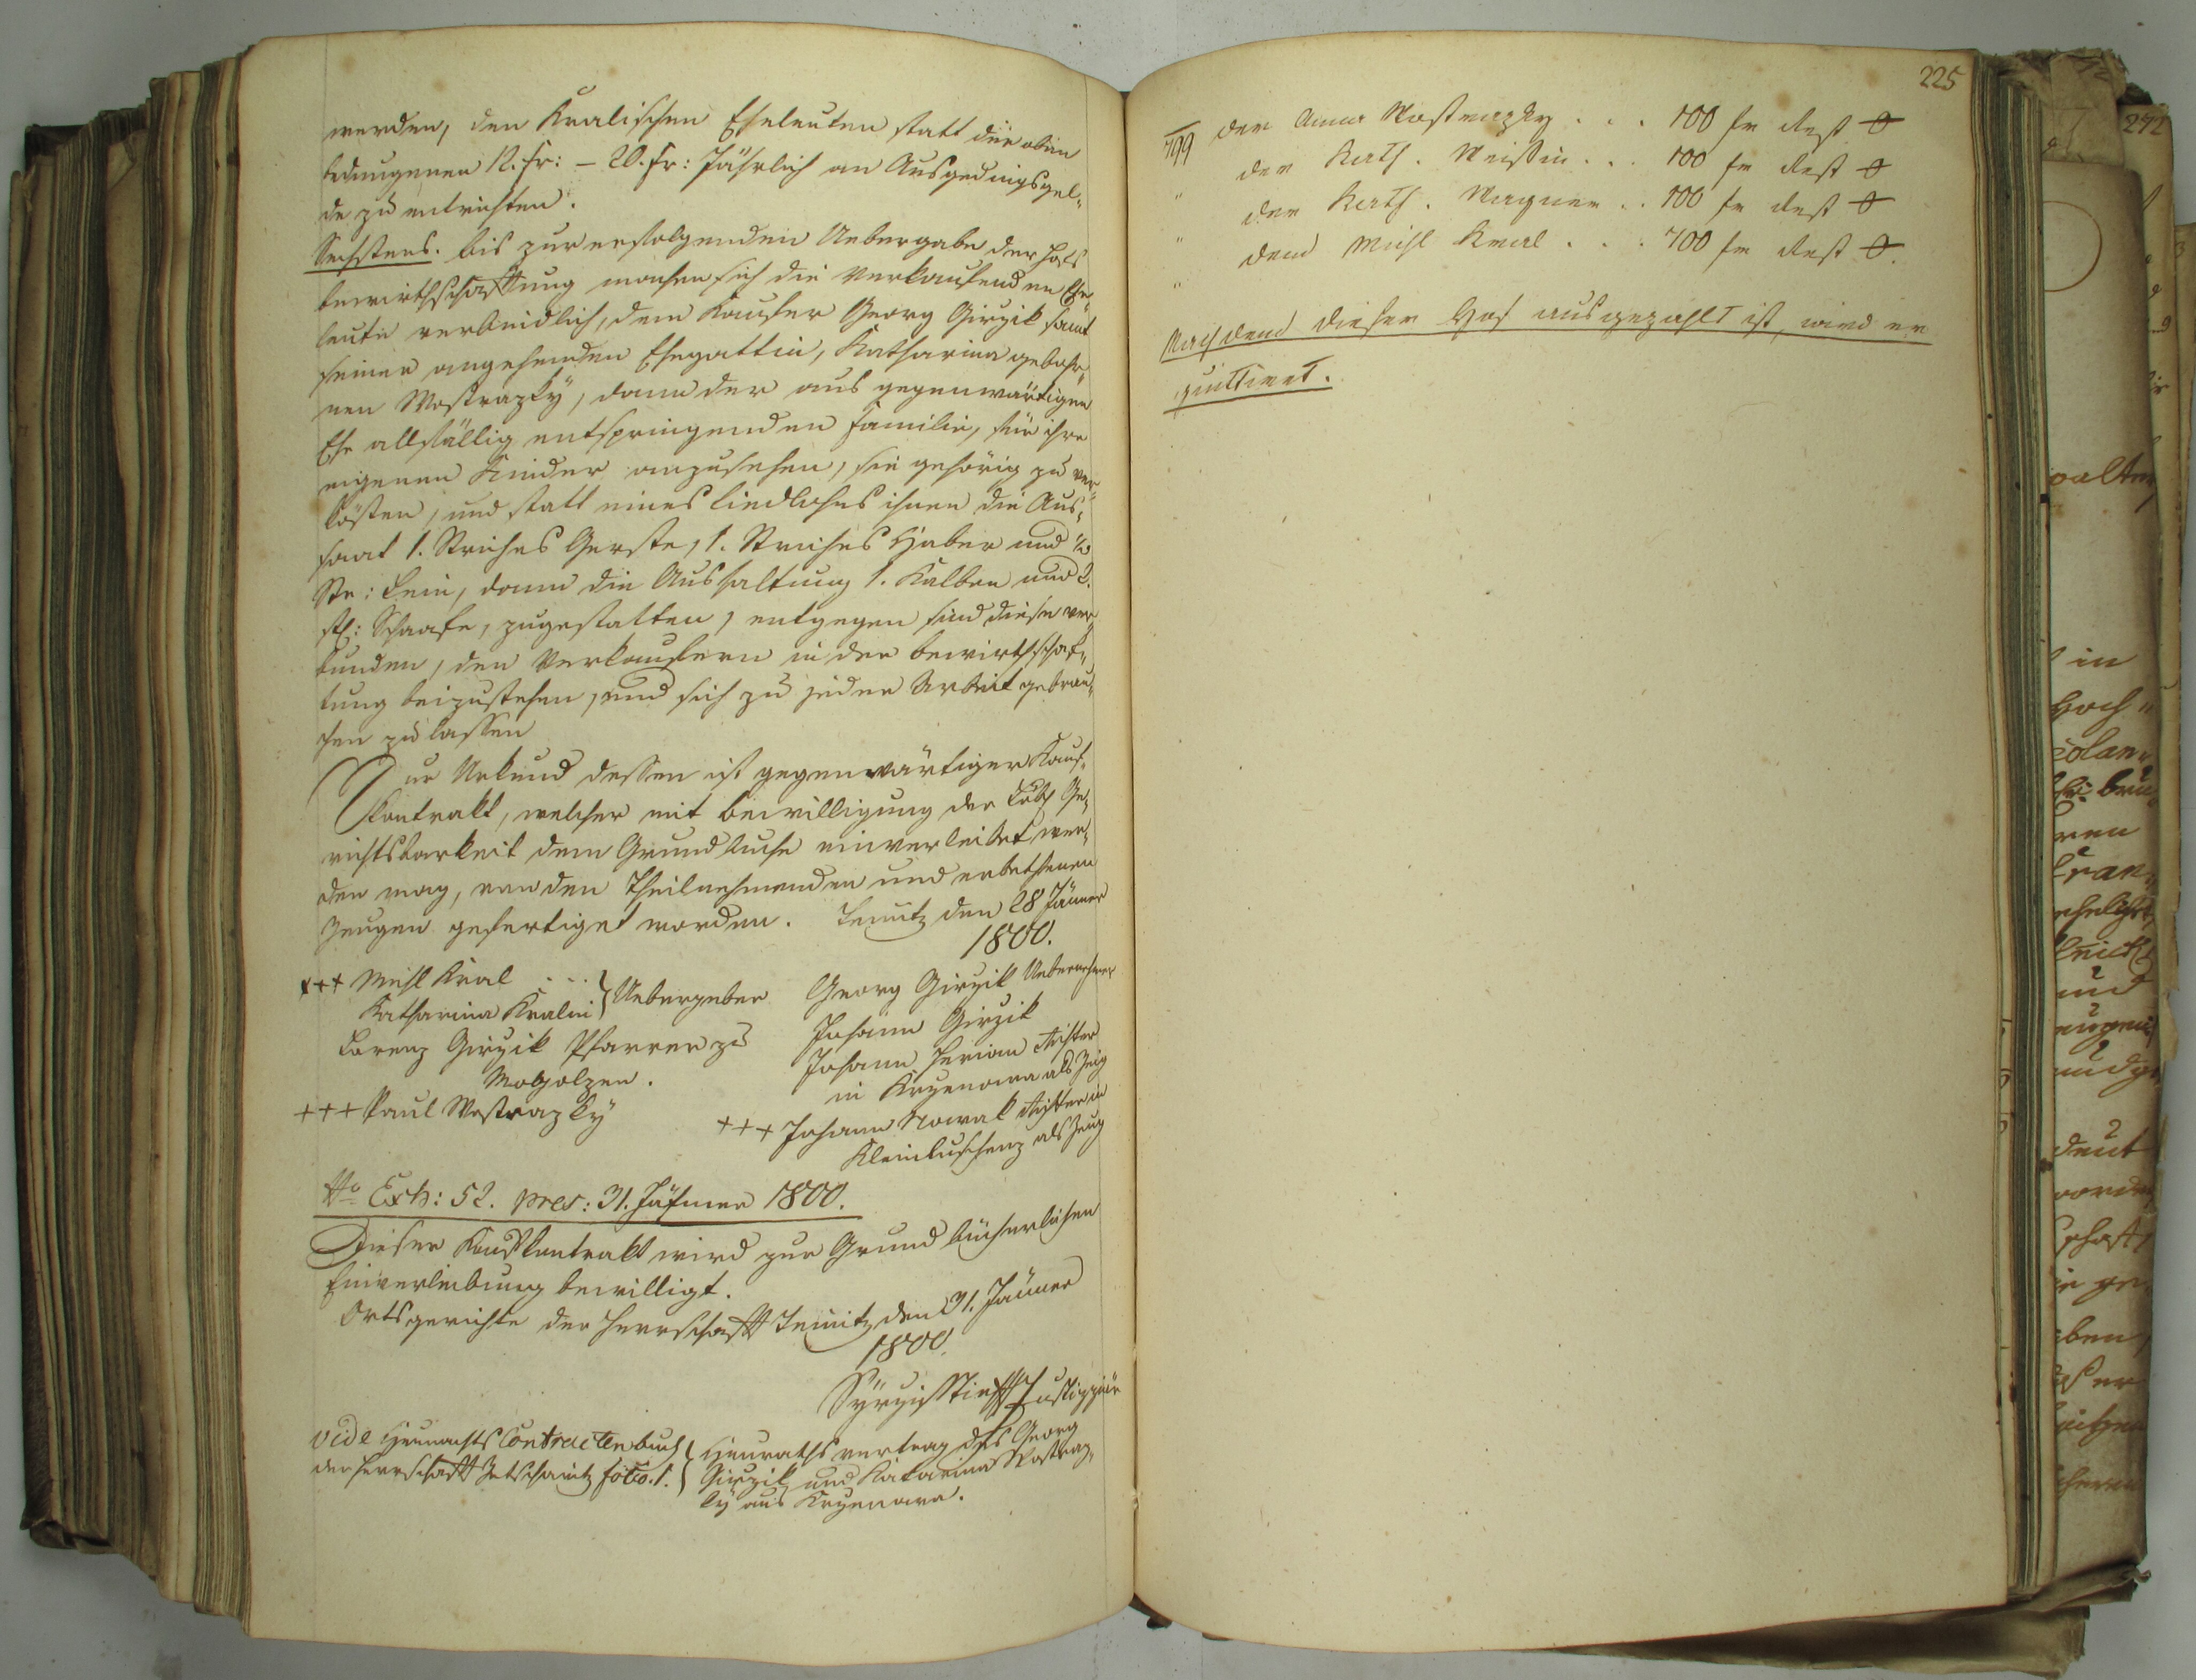 werden, den Kralischen Eheleuten statt die oben
bedungenen 12. fr: – 20. fr: Jährlich an Ausgedingsgel-
de zu entrichten.
Sechstens. bis zur erfolgenden Uebergabe der Hofs
bewirthschafttung machen sich die Verkaufenden Ehe-
leute verbindlich, dem Kaufer Georg Girzik samt
seiner angehenden Ehegattin, Katharina gebohr-
nen Mostrazky, dann der aus gegenwärtigen
Ehe allfällig entspringenden Familie, für ihre
eigenen Kinder anzusehen, sie gehörig zu ver-
kösten, und statt eines Liedlohns ihnen die Aus-
saat 1. Striches Gerste, 1. Striches Haber und 1/2
Str: Lein, dann die Aushaltung 1. Kalben und 2.
st: Schaafe, zugestatten, entgegen sind diese ver-
bunden, den Verkaufern in der bewirthschaf-
tung beizustehen, und sich zu jeder Arbeit gebrau-
chen zu lassen
Zur Urkund dessen ist gegenwärtiger Kauf-
Kontrakt, welcher mit bewilligung der Löbl Ge-
richtsbarkeit dem Grundbuche einverleibet wer-
den mag, von den Theilnehmenden und erbethenen
Zeugen gefertiget worden. Teinitz den 28 Jänner
1800.
+++ Michl Kral . . . } Uebergeber Georg Girzik Uebernehmer
Katharina Kralin
Lorenz Girzik Pfarrer zu Johann Girzik
Johann Richter
in Krzenowa als Zeug
+++ Paul Mostrazky
+++ Johann Nowak Richter in
als Zeug
No Exh: 52. pres: 31. Jänner 1800.
Dieser Kaufkontrakt wird zur Grundbücherlichen
Einverleibung bewilligt.
Ortsgerichte der Herrschafft Teinitz den 31. Jänner
1800.
Justizziär
Vide Heuraths Contracten buch { Heuraths vertrag des Georg
der Herrschafft folio. 1. { Girzik und Katarina Mostraz-
ky aus Krzenowa.
225
799 der Anna Mostrazky . . . 100 fr Rest 0
" der Kath. . . . 100 fr Rest 0
" der Kath. Wagner . . 100 fr Rest 0
" dem Michl Kral . . . 700 fr Rest 0.
Nachdem dieser Hof ausgezahlt ist, wird er
quittiret.